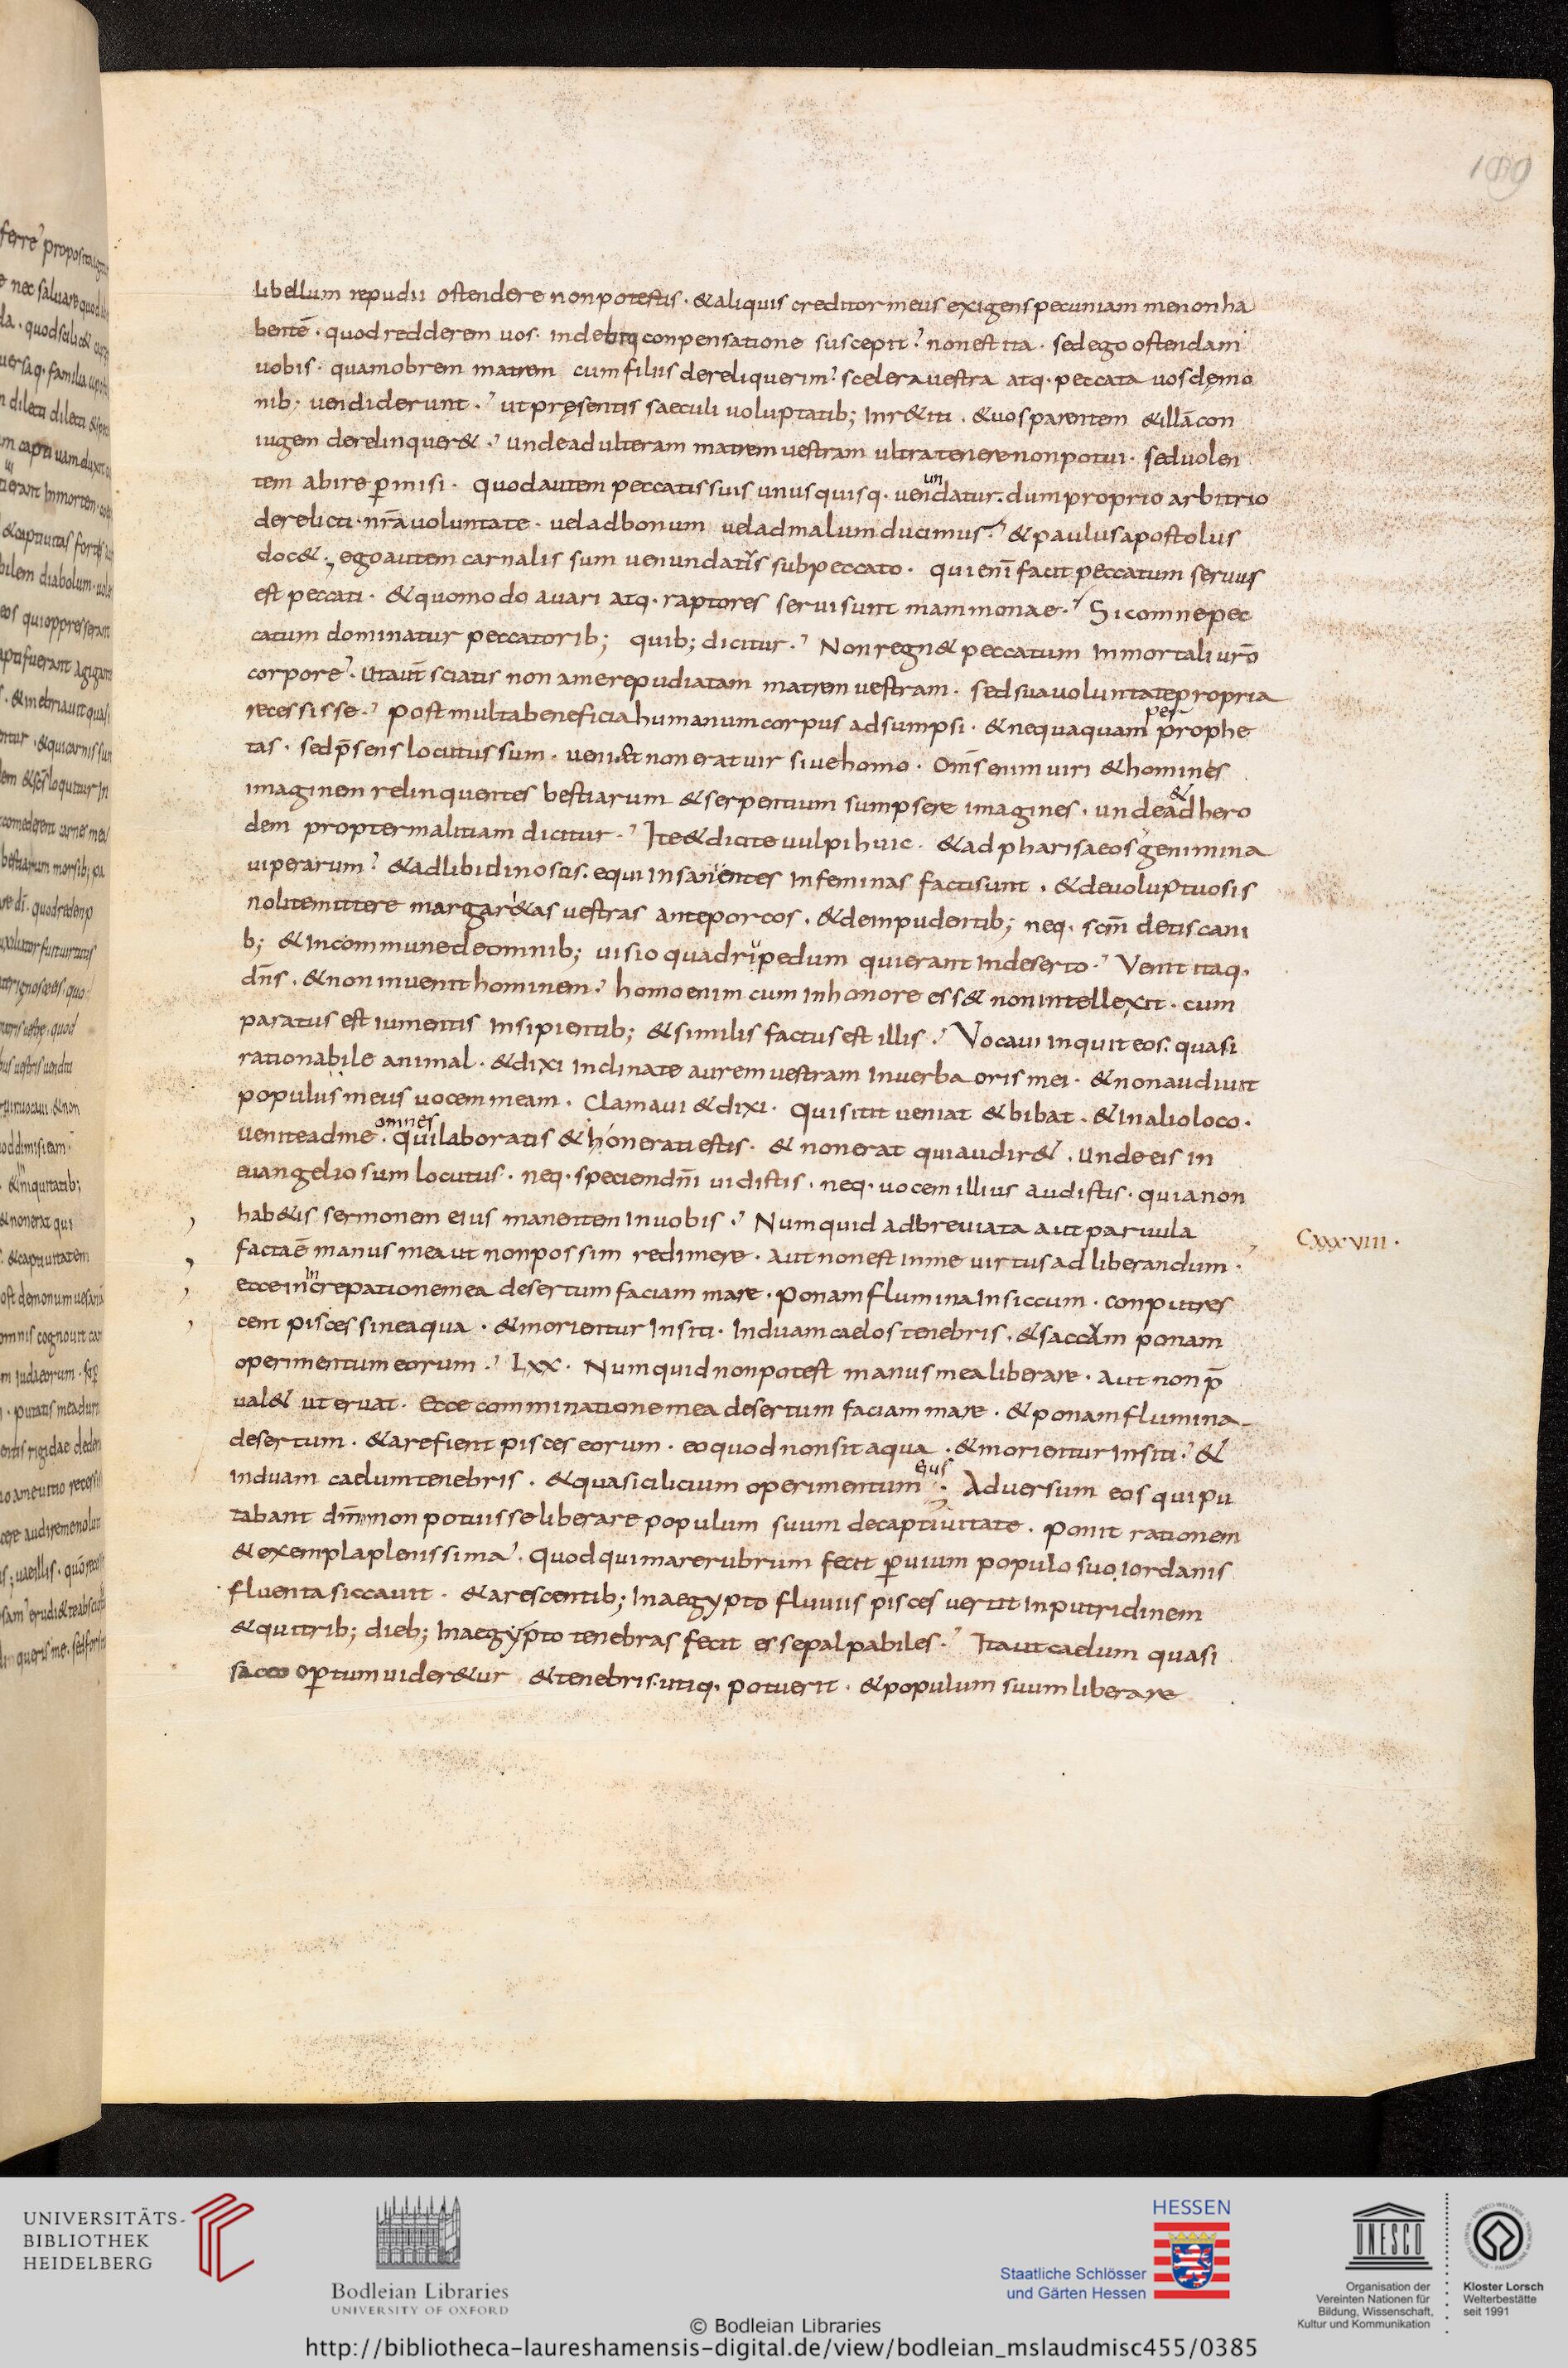 189
libellum repudii ostendere non potestis · & aliquis creditor meus exigens pecuniam me non ha
bentē · quod redderem uos · in debiti conpensatione suscepit? non est ita · sed ego ostendam
uobis · quamobrem matrem cum filiis dereliquerim? scelera uestra atq· peccata uos demo
nib; uendiderunt · ut pręsentis saeculi uoluptatib; inr&iti · & uos parentem & illā con
iugem derelinquer& · unde adulteram matrem uestram ultra tenere non potui · sed uolen
tem abire p̱misi · quod autem peccatis suis unusquisq· uenundatur · dum proprio arbitrio
derelicti · nr̄a uoluntate · uel ad bonum uel ad malum ducimus · & paulus apostolus
doc& · ego autem carnalis sum uenundatus sub peccato · qui enī facit peccatum seruus
est peccati · & quomodo auari atq· raptores serui sunt mammonae · Sic omne pec
catum dominatur peccatorib; quib; dicitur · Non regn& peccatum in mortali ur̄o
corpore · ut aut̄ sciatis non a me repudiatam matrem uestram · sed sua uoluntate propria
recessisse · post multa beneficia humanum corpus adsumpsi · & nequaquam per prophe
tas · sed p̄sens locutus sum · ueni & non erat uir siue homo · Om̄s enim uiri & homines
imaginem relinquentes bestiarum & serpentium sumpsere imagines · unde & ad hero
dem propter malitiam dicitur · Ite & dicite uulpi huic · & ad pharisaeos genimina
uiperarum? & ad libidinosos · equi insanientes in feminas facti sunt · & de uoluptuosis
nolite mittere margaritas uestras ante porcos · & de inpudentib; neq· scm̄ detis cani
b; & in commune de omnib; uisio quadrupedum qui erant in deserto · Venit itaq·
dn̄s · & non inuenit hominem · homo enim cum in honore ess& non intellexit · cum
paratus est iumentis insipientib; & similis factus est illis · Vocaui inquit eos · quasi
rationabile animal · & dixi inclinate aurem uestram in uerba oris mei · & non audiuit
populus meus uocem meam · Clamaui & dixi · qui sitit ueniat & bibat · & in alio loco ·
uenite ad me · omnes qui laboratis & honerati estis · & non erat qui audir& · unde eis in
euangelio sum locutus · neq· speciem dn̄i uidistis · neq· uocem illius audistis · quia non
hab&is sermonem eius manentem in uobis · Numquid adbreuiata aut paruula
facta ē manus mea ut non possim redimere · aut non est in me uirtus ad liberandum ·
CXXXVIII ·
ecce in increpatione mea desertum faciam mare · ponam flumina in siccum · conputres
cent pisces sine aqua · & morientur in siti · Induam caelos tenebris · & saccum ponam
operimentum eorum · LXX · Numquid non potest manus mea liberare · aut non p̄
ual& ut eruat · Ecce comminatione mea desertum faciam mare · & ponam flumina
desertum · & arefient pisces eorum · eo quod non sit aqua · & morientur in siti · &
induam caelum tenebris · & quasi cilicium operimentum eius · Aduersum eos qui pu
tabant dm̄ non potuisse liberare populum suum de captiuitate · ponit rationem
& exempla plenissima · Quod qui mare rubrum fecit p̱uium populo suo iordanis
fluenta siccauit · & arescentib; in aegypto fluuiis pisces uertit in putridinem
& qui trib; dieb; in aegypto tenebras fecit esse palpabiles · Ita ut caelum quasi
sacco op̱tum uider&ur & tenebris · utiq· potuerit · & populum suum liberare
UNIVERSITÄTS-
BIBLIOTHEK
HEIDELBERG
Bodleian Libraries
UNIVERSITY OF OXFORD
HESSEN
Staatliche Schlösser
und Gärten Hessen
UNESCO
Organisation der
Vereinten Nationen für
Bildung, Wissenschaft,
Kultur und Kommunikation
Kloster Lorsch
Welterbestätte
seit 1991
© Bodleian Libraries
http://bibliotheca-laureshamensis-digital.de/view/bodleian_mslaudmisc455/0385